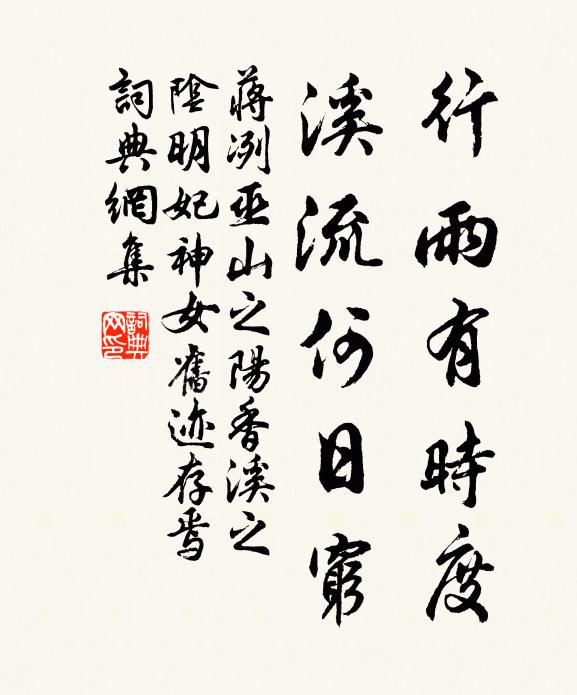 行雨有時度
溪流何日窮
蔣冽巫山之陽香溪之
陰明妃神女舊迹存焉
詞典網集
詞典網印